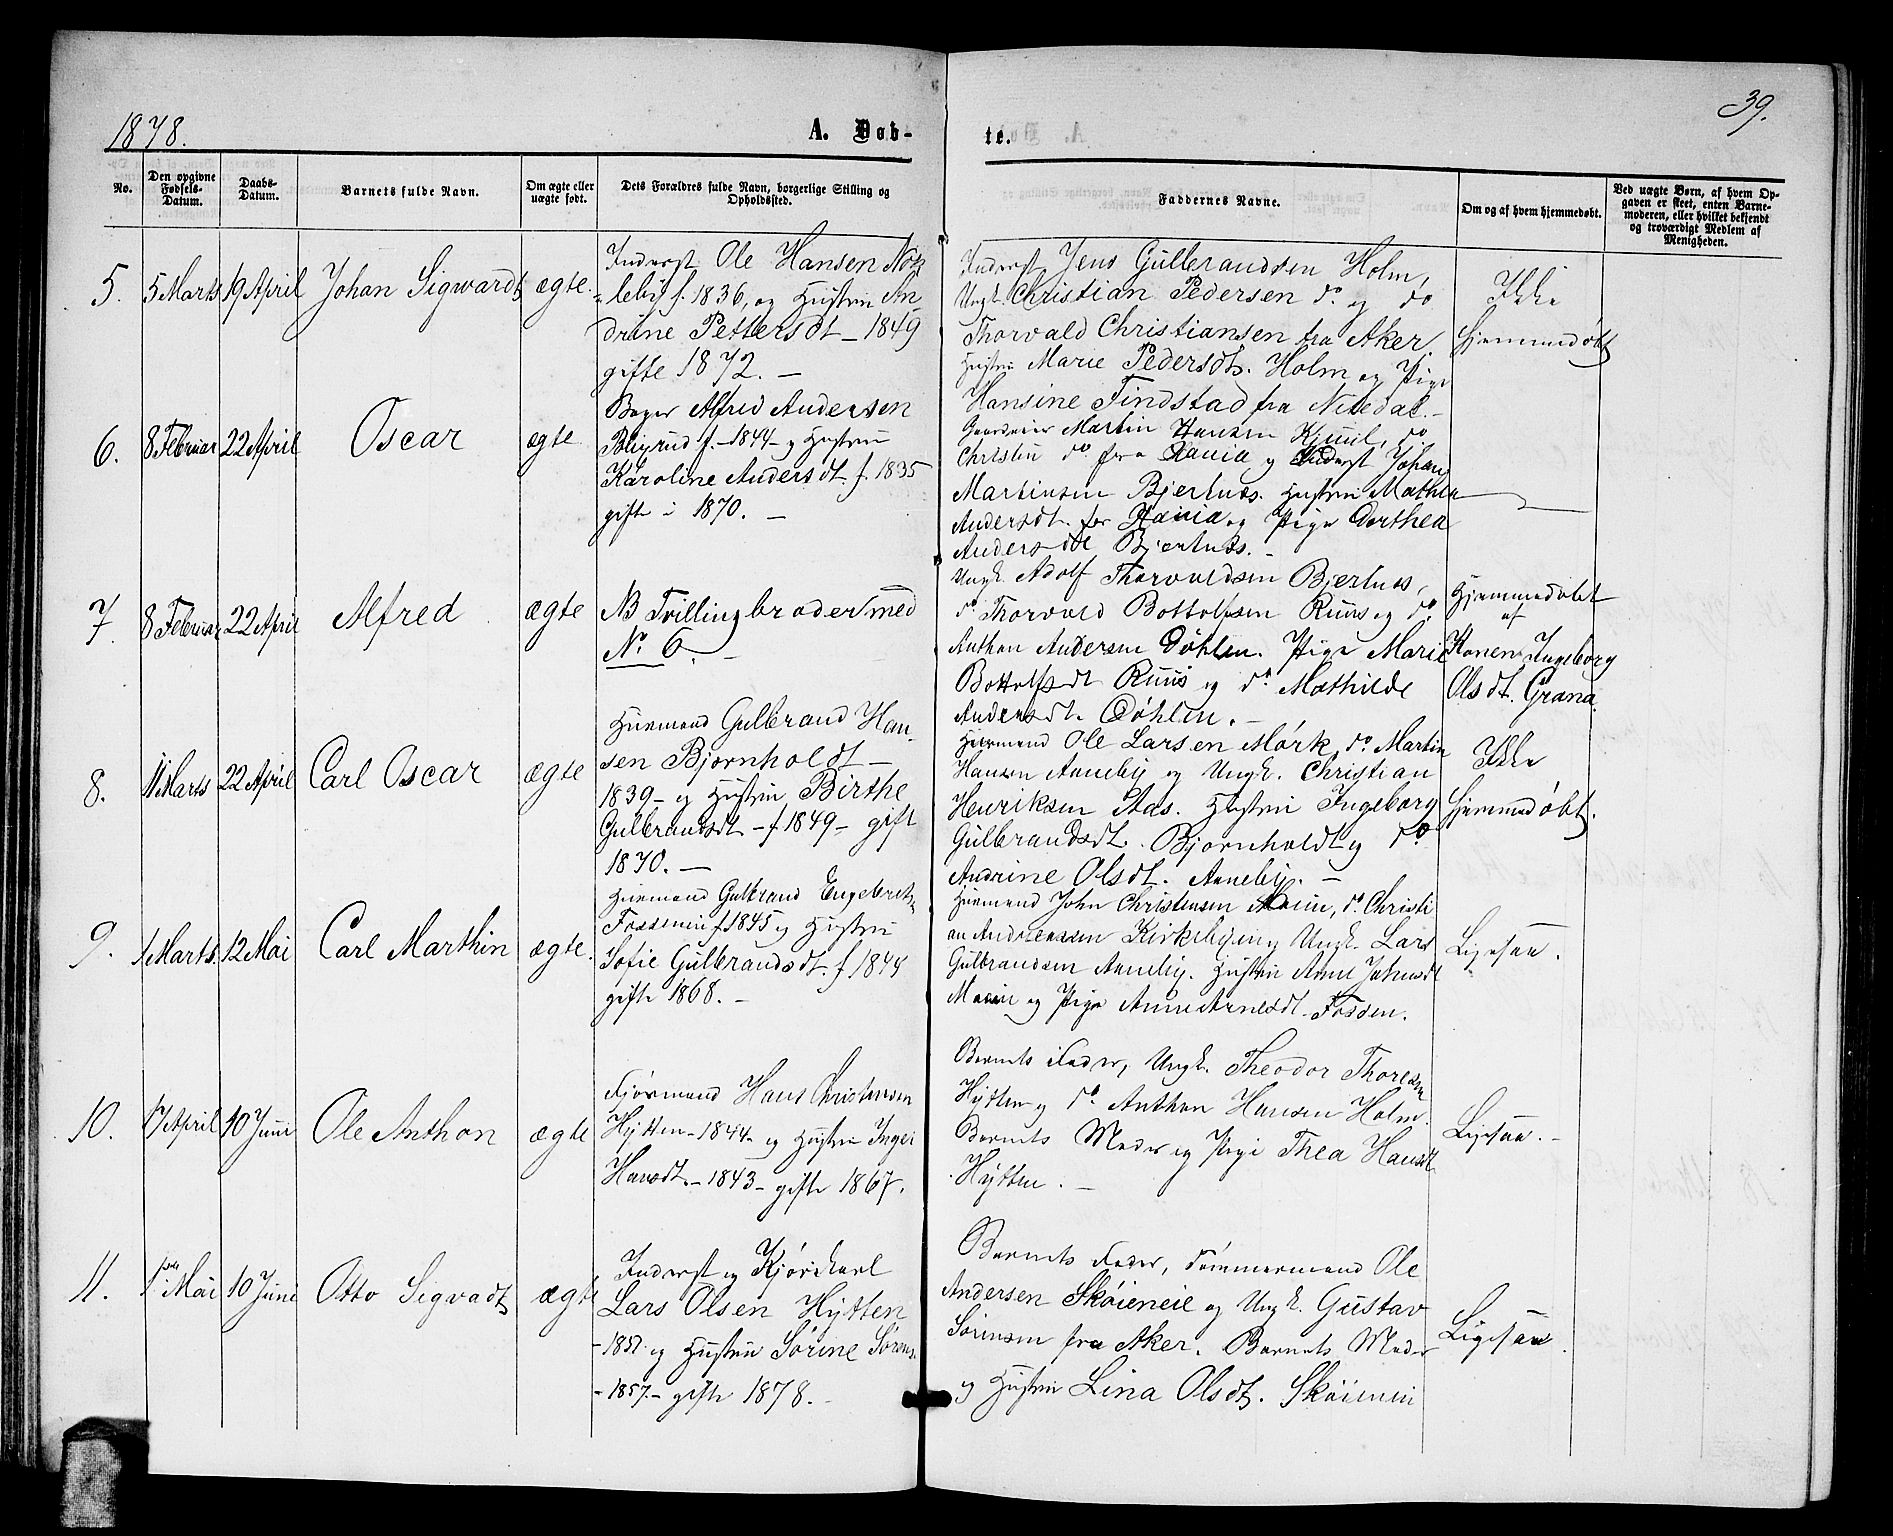 1878.
A. Døb-
te.
39.
No.
Den opgivne Fødsels-Datum.
Daabs-Datum.
Barnets fulde Navn.
Om ægte eller uægte født.
Dets Forældres fulde Navn, borgerlige Stilling og Opholdssted.
Faddernes Navne.
Om og af hvem hjemmedøbt.
Ved uægte Børn, af hvem Op-
gaven er skeet, enten Barne-
moderen, eller hvilket bekjendt
og troværdigt Medlem af
Menigheden.
5. 5 Marts 19 April Johan Sigwardt ægte.
Inderst Ole Hansen
leby f. 1836, og Hustru An
drine Pettersdt – 1849
gifte 1872. –
Inderst Jens Gulbrandsen Holm,
Ungk. Christian Pedersen do og do
Thorvald Christiansen fra Aker
Hustru Marie Pedersdt. Holm og Pige
Hansine Findstad fra Nitedal. –
Ikke
Hjemmedøbt
6. 8 Februar 22 April Oscar ægte
Alfred Andersen
f. – 1844 – og Hustru
Karoline Andersdt. f. 1835
gifte i 1870. –
Martin Hansen do
Christen do fra Hania og Inderst Johan
Martinsen Bjertnæs. Hustru Mathea
Andersdt. fra Hania og Pige Dorthea
Andersdt Bjertnæs. –
7. 8 Februar 22 April Alfred ægte
NB Tvillingbroder med
No 6. –
Ungk. Adolf Thorvaldsen Bjertnæs,
do Thorvald Bottolfsen Ruus og do
Anthon Andersen Døhlen. Pige Marie
Bottolfsdt Ruus og do Mathilde
Andersdt. Døhlen. –
Hjemmedøbt
af
Konen Ingeborg
Olsdt. Grana.
8. 11 Marts 22 April Carl Oscar ægte
Huusmand Gulbrand Han-
sen Bjørnholdt –
1839 – og Hustru Birthe
Gulbrandsdt – f 1849 – gift
1870. –
Huusmand Ole Larsen Mørk, do Martin
Hansen Aaneby og Ungk. Christian
Henriksen Aas. Hustru Ingeborg
Gulbrandsdt. Bjørnholdt og do
Andrine Olsdt. Aaneby. –
Ikke
Hjemmedøbt.
9. 1 Marts. 12 Mai Carl Marthin ægte.
Huusmand Gulbrand Engebrets
f 1845 og Hustru
Sofie Gulbrandsdt. f 1844
gifte 1868. –
Huusmand John Christensen do Christi
an Andreassen Kirkebyen og Ungk. Lars
Gulbrandsen Aaneby. Hustru Anne Johnsdt
og Pige Anne Arnesdt. Fossen.
Ligesaa.
10. 17 April 10 Juni Ole Anthon ægte
Kjørmand Hans Christensen
Hytten – 1844 – og Hustru Inger
Hansdt. – 1843 – gifte 1867.
Barnets Fader, Ungk. Theodor Thoresen
Hytten og do Anthon Hansen Holm.
Barnets Moder og Pige Thea Hansdt
Hytten. –
Ligesaa. –
11. 1ste Mai 10 Juni Otto Sigvadt ægte
Inderst og Kjørekarl
Lars Olsen Hytten
– 1851. og Hustru Sørine Sørens.
– 1857. – gifte 1878. –
Barnets Fader, Tømmermand Ole
Andersen Skøieneie og Ungk. Gustav
Sørensen fra Aker. Barnets Moder
og Hustru Lina Olsdt. Skøienei
Ligesaa.